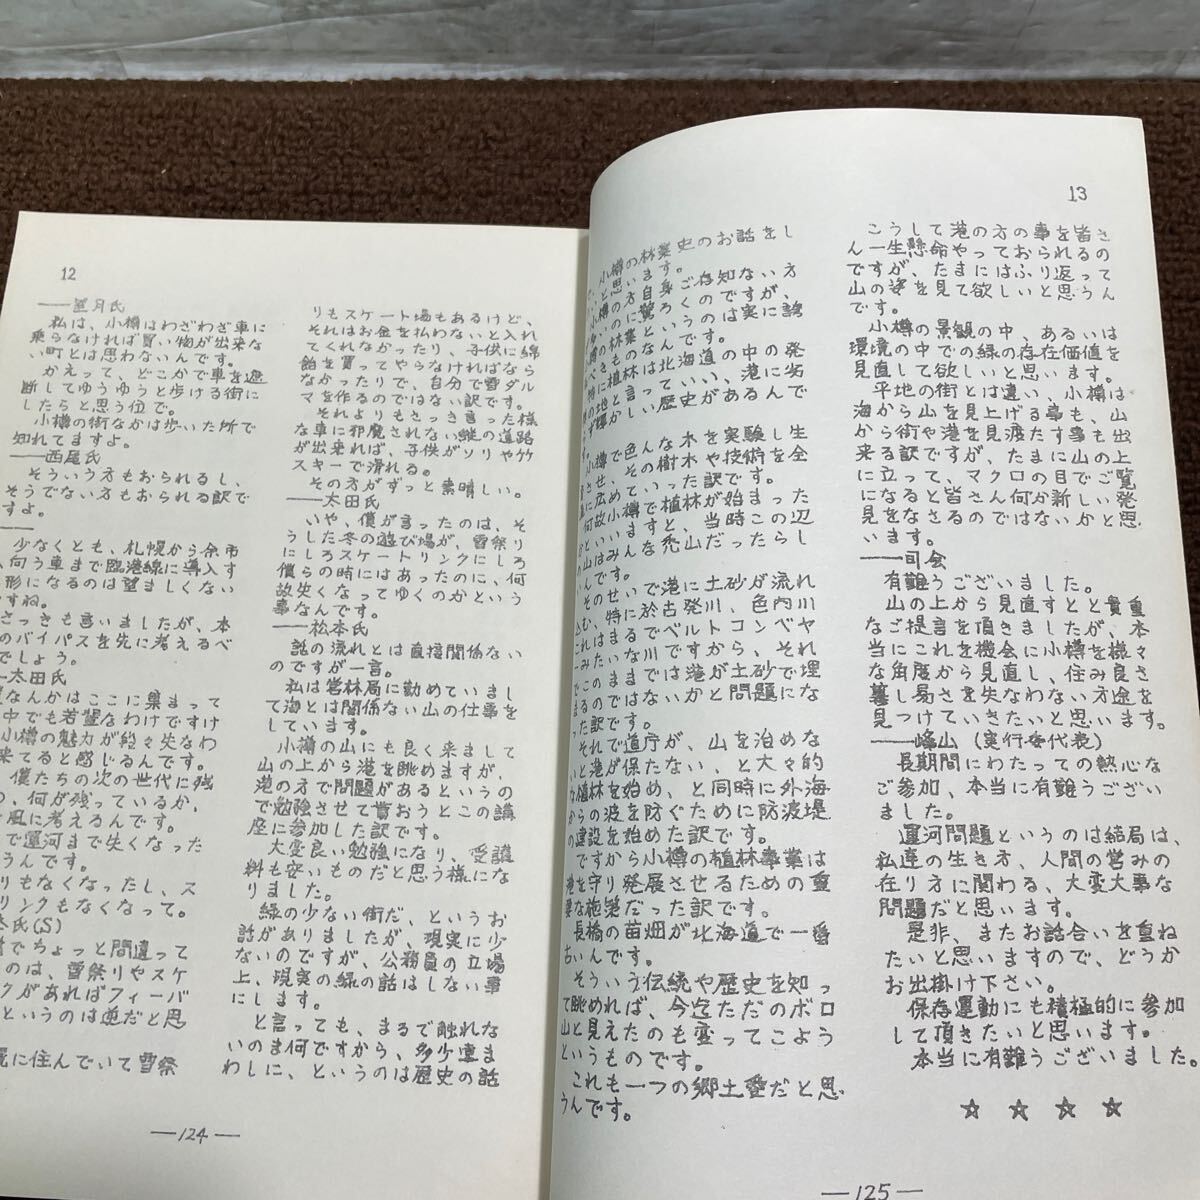 12
――望月氏
私は、小樽はわざわざ車に
乗らなければ買い物が出来な
い町とは思わないんです。
かえって、どこかで車を遮
断してゆうゆうと歩ける街に
したらと思う位で。
小樽の街なかは歩いた所で
知れてますよ。
――西尾氏
そういう方もおられるし、
そうでない方もおられる訳で
すよ。
――
少なくとも、札幌から余市
向う車まで臨港線に導入す
形になるのは望ましくない
すね。
さっきも言いましたが、本
のバイパスを先に考えるべ
でしょう。
―太田氏
なんかはここに集まって
中でも若輩なわけですけ
小樽の魅力が段々失なわ
来てると感じるんです。
僕たちの次の世代に残
、何が残っているか、
風に考えるんです。
で運河まで失くなった
うんです。
りもなくなったし、ス
リンクもなくなって。
本氏(S)
でちょっと間違って
のは、雪祭りやスケ
クがあればフィーバ
というのは逆だと思
に住んでいて雪祭
りもスケート場もあるけど、
それはお金を払わないと入れ
てくれなかったり、子供に綿
飴を買ってやらなければなら
なかったりで、自分で雪ダル
マを作るのではない訳です。
それよりもさっき言った様
な車に邪魔されない縦の道路
が出来れば、子供がソリや竹
スキーで滑れる。
その方がずっと素晴しい。
――太田氏
いや、僕が言ったのは、そ
うした冬の遊び場が、雪祭り
にしろスケートリンクにしろ
僕らの時にはあったのに、何
故失くなってゆくのかという
事なんです。
――松本氏
話の流れとは直接関係ない
のですが一言。
私は営林局に勤めていまし
て海とは関係ない山の仕事を
しています。
小樽の山にも良く来まして
山の上から港を眺めますが、
港の方で問題があるというの
で勉強させて貰おうとこの講
座に参加した訳です。
大変良い勉強になり、受講
料も安いものだと思う様にな
りました。
緑の少ない街だ、というお
話がありましたが、現実に少
ないのですが、公務員の立場
上、現実の緑の話はしない事
にします。
と言っても、まるで触れな
いのま何ですから、多少遠ま
わしに、というのは歴史の話
―124―
13
、小樽の林業史のお話をし
いと思います。
小樽の方自身ご存知ない方
いのに驚ろくのですが、
樽の林業というのは実に誇
べきものなんです。
特に植林は北海道の中の発
の地と言っていい、港に劣
ず輝かしい歴史があるんで
。
小樽で色んな木を実験し生
させ、その樹木や技術を全
に広めていった訳です。
何故小樽で植林が始まった
といいますと、当時この辺
の山はみんな禿山だったらし
んです。
そのせいで港に土砂が流れ
込む、特に於古発川、色内川
これはまるでベルトコンベヤ
ーみたいな川ですから、それ
でこのままでは港が土砂で埋
まるのではないかと問題にな
った訳です。
それで道庁が、山を治めな
いと港が保たない、と大々的
な植林を始め、と同時に外海
からの波を防ぐために防波堤
の建設を始めた訳です。
ですから小樽の植林事業は
港を守り発展させるための重
要な施策だった訳です。
長橋の苗畑が北海道で一番
古いんです。
そういう伝統や歴史を知っ
て眺めれば、今迄ただのボロ
山と見えたのも変ってこよう
というものです。
これも一つの郷土愛だと思
うんです。
こうして港の方の事を皆さ
ん一生懸命やっておられるの
ですが、たまにはふり返って
山の姿を見て欲しいと思うん
です。
小樽の景観の中、あるいは
環境の中での緑の存在価値を
見直して欲しいと思います。
平地の街とは違い、小樽は
海から山を見上げる事も、山
から街や港を見渡たす事も出
来る訳ですが、たまに山の上
に立って、マクロの目でご覧
になると皆さん何か新しい発
見をなさるのではないかと思
います。
――司会
有難うございました。
山の上から見直すとと貴重
なご提言を頂きましたが、本
当にこれを機会に小樽を様々
な角度から見直し、住み良さ
暮し易さを失なわない方途を
見つけていきたいと思います。
――峰山（実行委代表）
長期間にわたっての熱心な
ご参加、本当に有難うござい
ました。
運河問題というのは結局は、
私達の生き方、人間の営みの
在り方に関わる、大変大事な
問題だと思います。
是非、またお話合いを重ね
たいと思いますので、どうか
お出掛け下さい。
保存運動にも積極的に参加
して頂きたいと思います。
本当に有難うございました。
☆ ☆ ☆ ☆
―125―